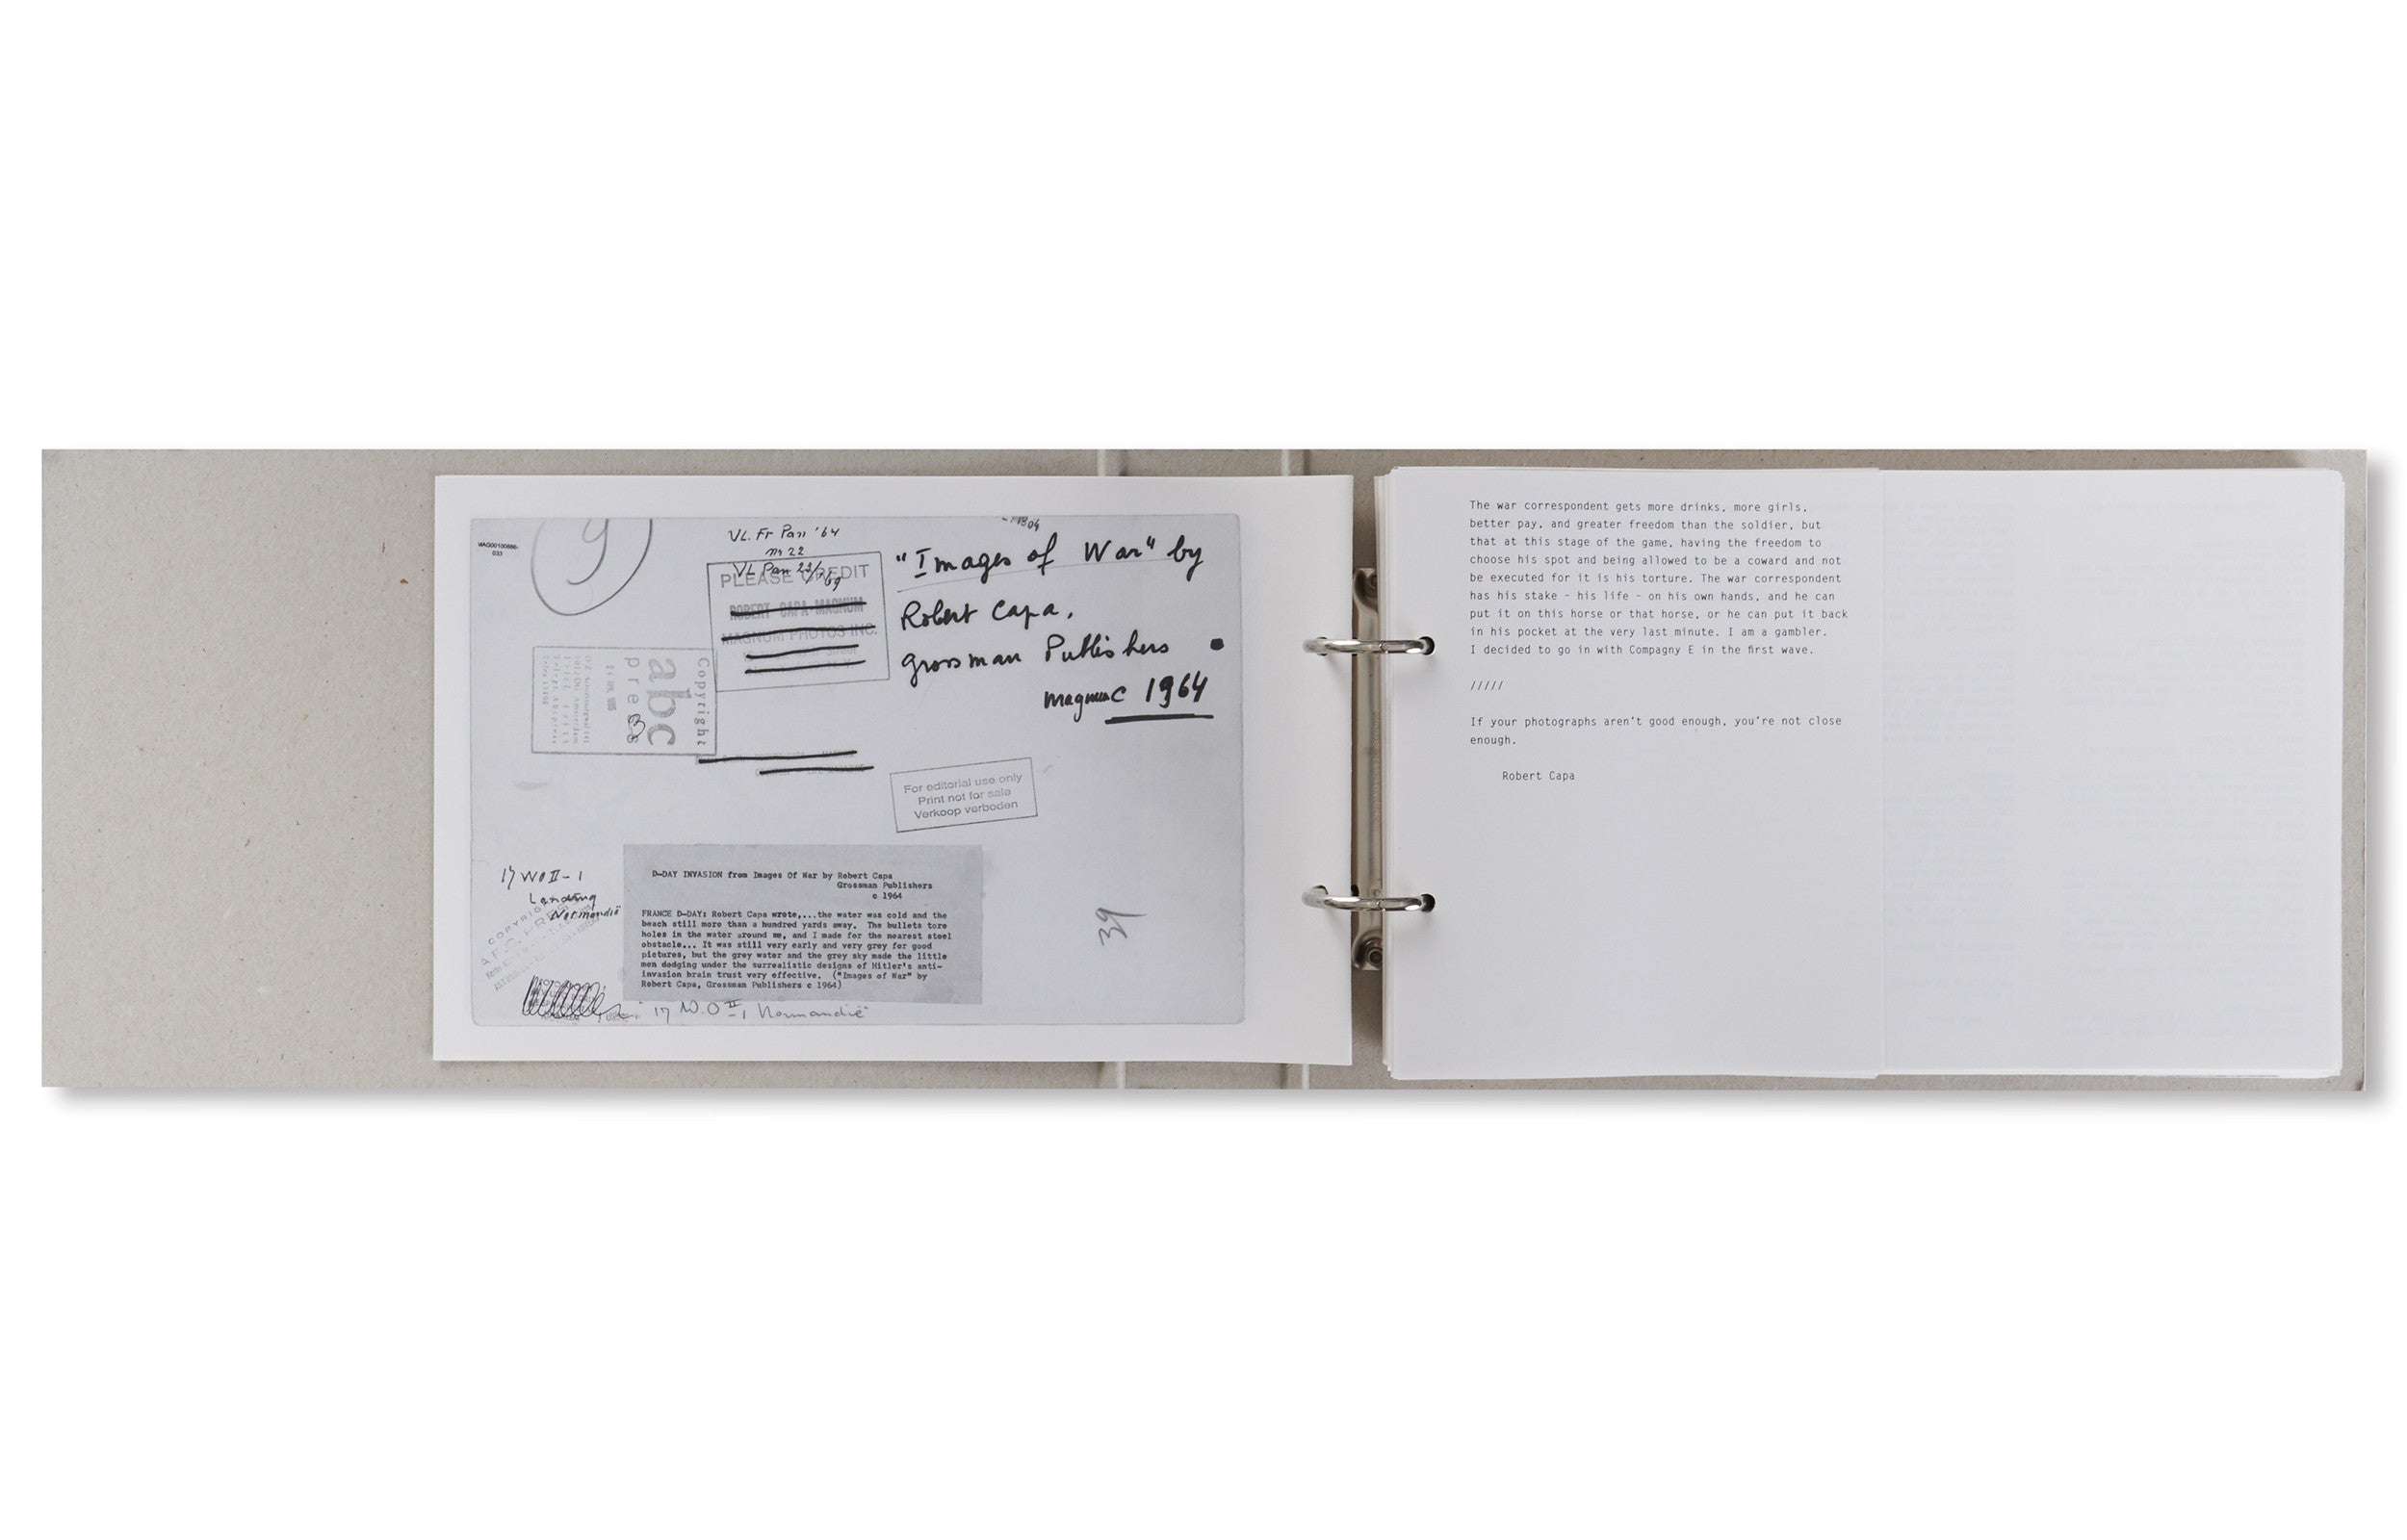 MAG00100886-
033
9
VL. Fr Pan '64
nr 22
VL Pan 22/'69
PLEASE CREDIT
ROBERT CAPA-MAGNUM
MAGNUM PHOTOS INC.
"Images of War" by
Robert Capa,
grossman Publishers
1964
Copyright
abc
press
3
For editorial use only
Print not for sale
Verkoop verboden
17 WO II-1
Landing
Normandië
COPYRIGHT
D-DAY INVASION from Images Of War by Robert Capa
Grossman Publishers
c 1964
FRANCE D-DAY: Robert Capa wrote,...the water was cold and the
beach still more than a hundred yards away. The bullets tore
holes in the water around me, and I made for the nearest steel
obstacle... It was still very early and very grey for good
pictures, but the grey water and the grey sky made the little
men dodging under the surrealistic designs of Hitler's anti-
invasion brain trust very effective. ("Images of War" by
Robert Capa, Grossman Publishers c 1964)
17 W.O II-1 Normandië
39
The war correspondent gets more drinks, more girls,
better pay, and greater freedom than the soldier, but
that at this stage of the game, having the freedom to
choose his spot and being allowed to be a coward and not
be executed for it is his torture. The war correspondent
has his stake - his life - on his own hands, and he can
put it on this horse or that horse, or he can put it back
in his pocket at the very last minute. I am a gambler.
I decided to go in with Compagny E in the first wave.
/////
If your photographs aren't good enough, you're not close
enough.
Robert Capa